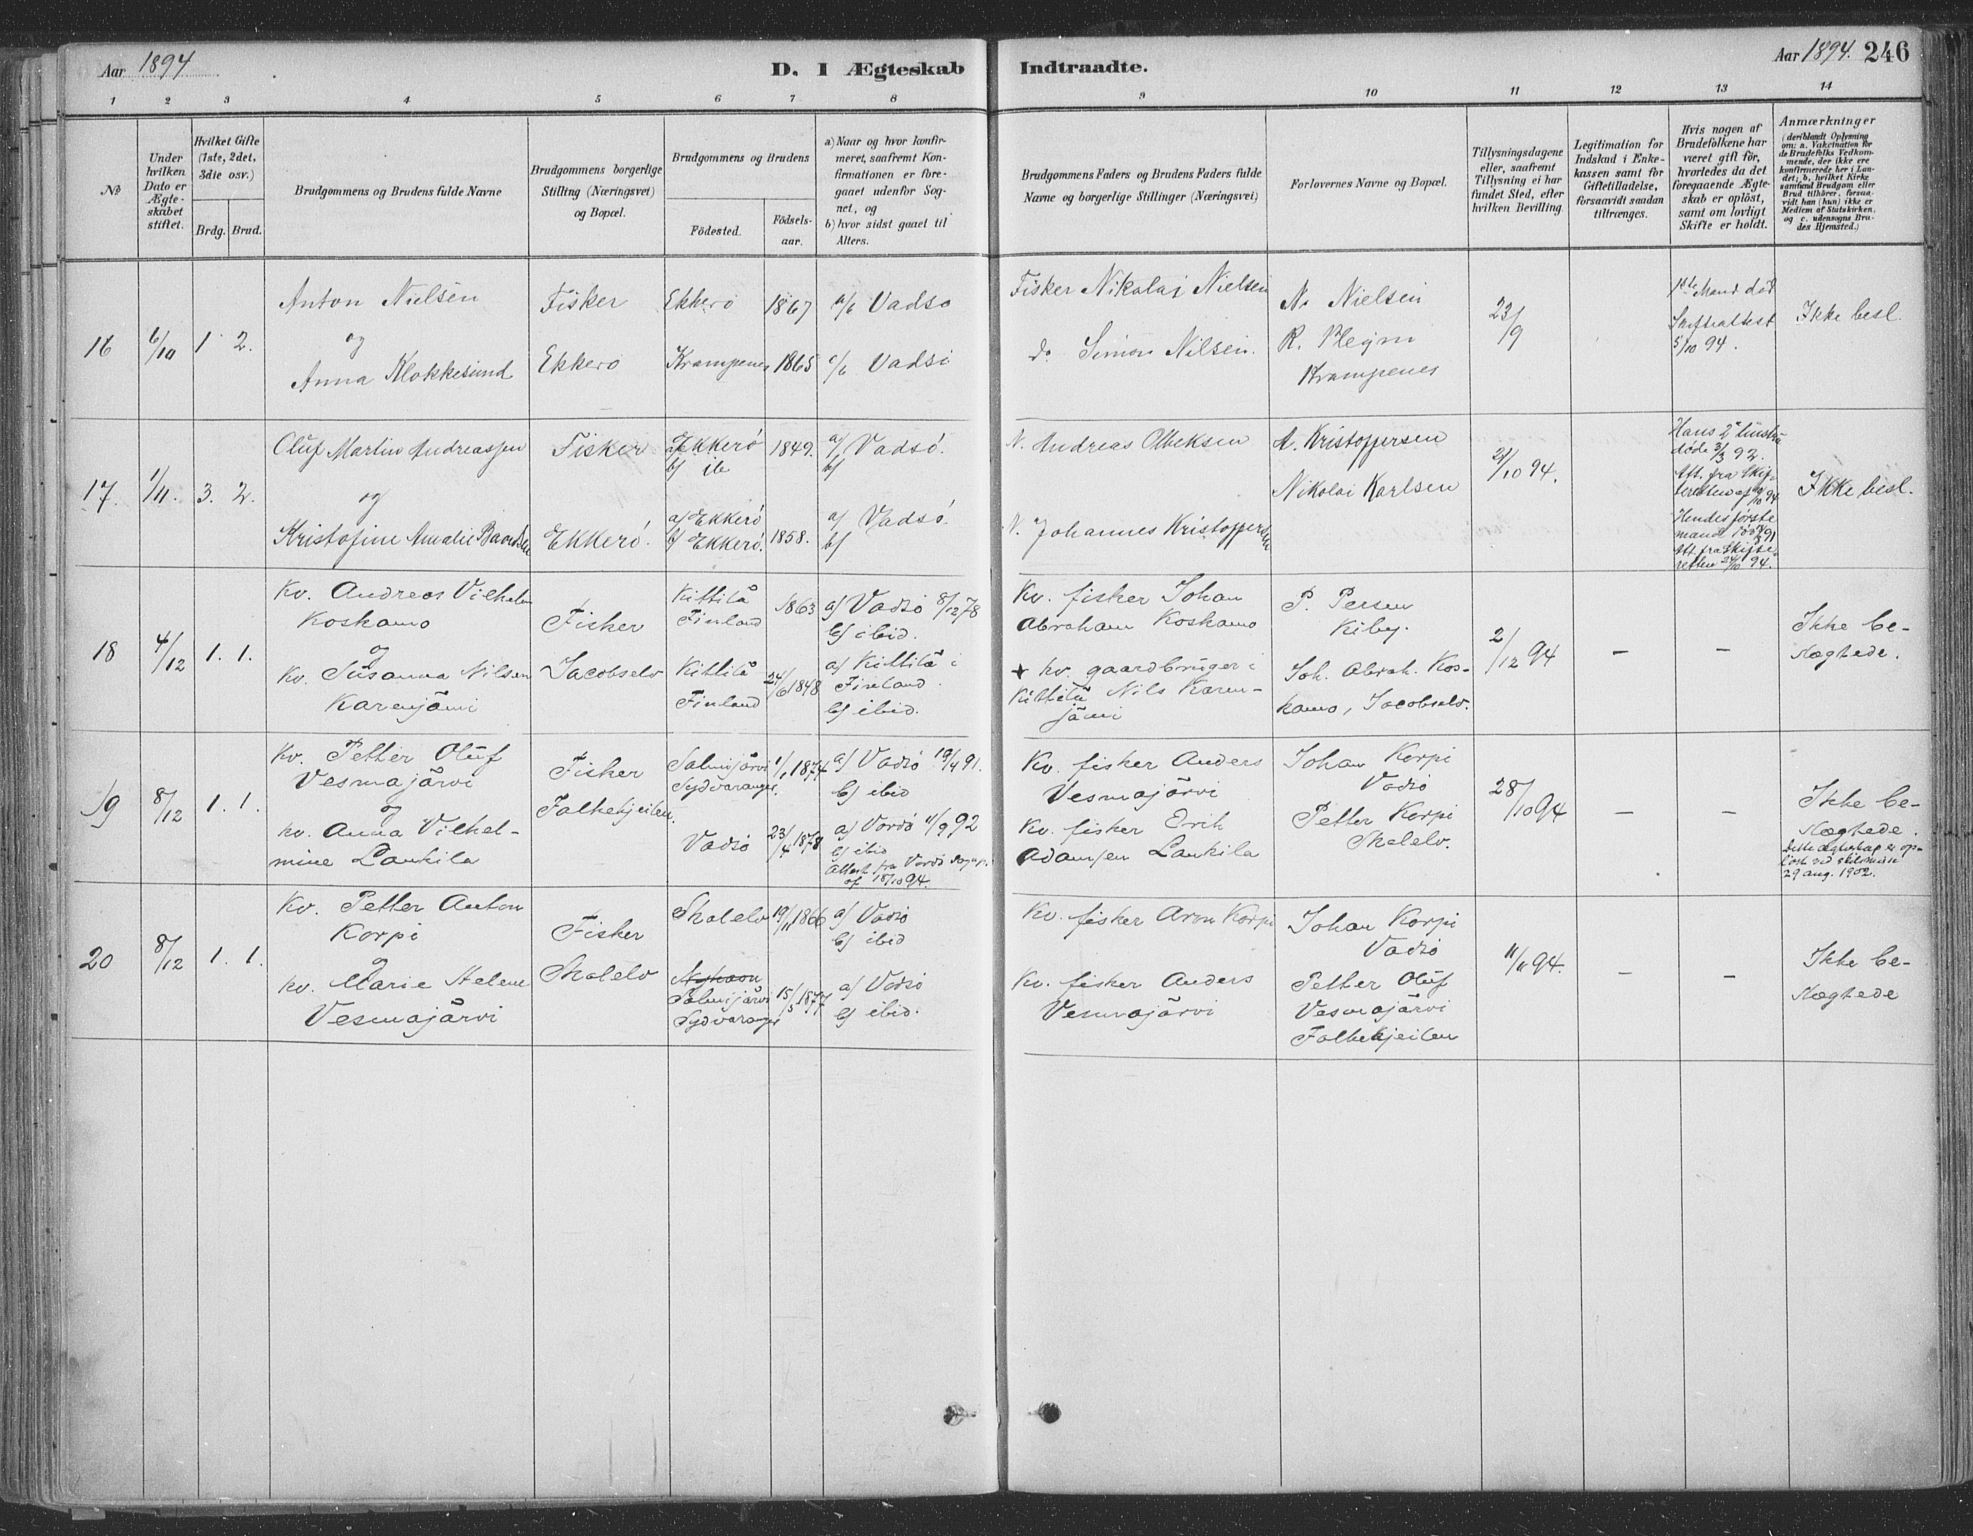 Aar 1894
D. I Ægteskab Indtraadte.
Aar 1894. 246
1 2 3 4 5 6 7 8 9 10 11 12 13 14
No
Under hvilken Dato er Ægteskabet stiftet.
Hvilket Gifte (1ste, 2det, 3die osv.)
Brdg. Brud.
Brudgommens og Brudens fulde Navne
Brudgommens borgerlige Stilling (Næringsvei) og Bopæl.
Brudgommens og Brudens
Fødested.
Fødselsaar.
a) Naar og hvor konfirmeret, saafremt Konfirmationen er foregaaet udenfor Sognet, og
b) hvor sidst gaaet til Alters.
Brudgommens Faders og Brudens Faders fulde Navne og borgerlige Stillinger (Næringsvei)
Forlovernes Navne og Bopæl.
Tillysningsdagene eller, saafremt Tillysning ei har fundet Sted, efter hvilken Bevilling.
Legitimation for Indskud i Enkekassen samt for Giftetilladelse, forsaavidt saadan tiltrænges.
Hvis nogen af Brudefolkene har været gift før, hvorledes da det foregaaende Ægteskab er opløst, samt om lovligt Skifte er holdt.
Anmærkninger
(deriblandt Oplysning om: a. Vaccination for de Brudefolks Vedkommende, der ikke ere konfirmerede her i Landet; b, hvilket Kirkesamfund Brudgom eller Brud tilhører, forsaavidt han (hun) ikke er Medlem af Statskirken, og c. udensogns Brudes Hjemsted.)
16 6/10 1 2.
Anton Nielsen
og
Anna Klokkesund
Fisker
Ekkerø
Ekkerø 1867 a/b Vadsø
Krampenes 1865 a/b Vadsö
Fisker Nikolai Nielsen
do. Simon Nilsen.
N. Nielsen
R. Flegm
Krampenes
23/9
1ste Mand død
Skifteattest
5/10 94.
Ikke besl.
17. 1/11. 3. 2.
Oluf Martin Andreassen
og
Kristofine Amalie
Fisker
Ekkerö.
a) Ekkerö
b) ib 1849. a/ Vadsö.
b/
a) Ekkerö
b) Ekkerö. 1858. a/ Vadsö.
b/
N. Andreas
N. Johannes Kristoffersen
A. Kristoffersen
Nikolai Karlsen
21/10 94.
Hans 2den hustru
døde 3/3 92.
Att. fra Skifteretten af 94
Hendes første
mand død 91
Att. fra Skifteretten 24/10 94.
Ikke besl.
18 4/12 1. 1.
Kv. Andreas Vilhelm
Koskamo
og
Kv. Susanna Nilsen
Karenjämi
Fisker
Jacobselv
Kittilä
Finland 1863
Kittilä
Finland 24/6 1848
a) Vadsö 8/12 78
b) ibid.
a) Kittilä i
Finland.
b) ibid.
Kv. fisker Johan
Abraham Koskamo
+ kv. gaardbruger i
Kittilä Nils Karenjämi
P. Persen
Kiby.
Joh. Abrah. Koskamo, Jacobselv.
2/12 94
–
–
Ikke beslægtede.
19 8/12 1. 1.
Kv. Petter Oluf
Vesmajärvi
og
Kv. Anna Vilhelmine Lankila
Fisker
Falkekjeilen.
Salmijärvi
Sydvaranger. 1/1 1874
Vadsö 23/4 1878
a) Vadsö 19/4 91.
b) ibid
a) Vardö 11/9 92
b) ibid
Attest fra Vardö Sogn
af 18/10 94.
Kv. fisker Anders
Vesmajärvi
Kv. fisker Erik
Adamsen Lankila
Johan Korpi
Vadsö
Petter Korpi
Skalelv.
28/10 94
–
–
Ikke beslægtede.
Dette ægteskap er opløst ved skilsmisse
29 aug. 1902.
20 8/12 1. 1.
Kv. Petter Anton
Korpi
og
Kv. Marie Helene
Vesmajärvi
Fisker
Skalelv
Skalelv 19/11 1866
Salmijärvi
Sydvaranger 15/5 1877
a) Vadsö
b) ibid
a) Vadsö
b) ibid.
Kv. fisker Aron Korpi
Kv. fisker Anders
Vesmajärvi
Johan Korpi
Vadsö
Petter Oluf
Vesmajärvi
Falkekjeilen
11/11 94.
–
–
Ikke beslægtede